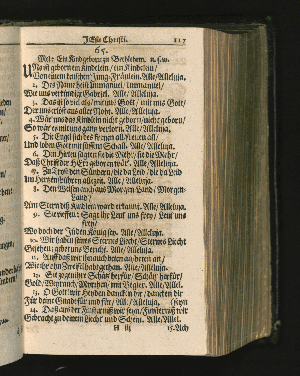 JEsu Christi. 117
65.
Mel: Ein Kind geborn zu Bethlehem. u. s. w.
UNs ist geboren ein Kindelein / ein Kindelein /
Von einem keuschen Jung-Fräulein. Alle / Alleluja.
2. Des Nam heist Immanuel / Immanuel /
Wie uns verkündigt Gabriel. Alle / Alleluja.
3. Das ist so viel als / mit uns Gott / mit uns Gott /
Der uns erlöst aus aller Noht. Alle / Alleluja.
4. Wär uns das Kindlein nicht geborn / nicht geborn /
So wär es mit uns gantz verlorn. Alle / Alleluja.
5. Die Engel sich des freuen all / freuen all /
Und loben Gott mit süssem Schall. Alle / Alleluja.
6. Den Hirten sagten sie die Mehr / sie die Mehr /
Daß Christ der HErr geboren wär. Alle / Alleluja.
7. Zu Trost den Sündern / die da Leid / die da Leid
Im Hertzen führen allezeit. Alle / Alleluja.
8. Den Weisen auch aus Morgen-Land / Morgen-
Land /
Am Stern diß Kindlein ward erkannt. Alle / Alleluja.
9. Sie rieffen: Sagt ihr Leut uns frey / Leut uns
frey /
Wo doch der Jüden König sey. Alle / Alleluja.
10. Wir haben seines Sternes Liecht / Sternes Liecht
Gesehen; gebt uns Bericht. Alle / Alleluja.
11. Auff daß wir ihn auch beten an / beten an /
12. Sie zogen ihre Schätz herfür / Schätz herfür /
Gold / Weyrauch, Myrrhen / mit Begier. Alle / Alleluja.
13. O Gott wir Heyden dancken dir / dancken dir
Für deine Gnade für und für / Alle / Alleluja.
14. Daß aus der Finsternuß wir seyn / Finsternuß wir
Gebracht zu deinem Liecht und Schein. Alle / Allel.
H iij 15. Ach